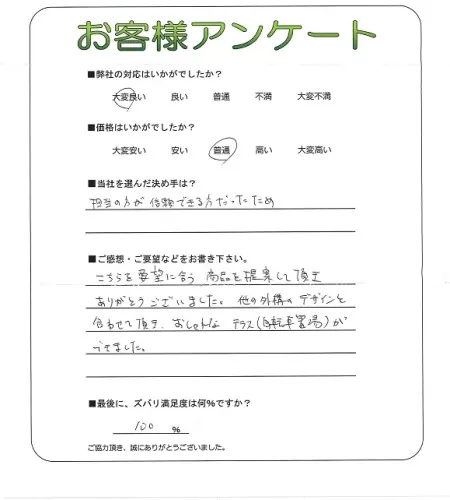 お客様アンケート
■弊社の対応はいかがでしたか？
大変良い 良い 普通 不満 大変不満
■価格はいかがでしたか？
大変安い 安い 普通 高い 大変高い
■当社を選んだ決め手は？
担当の方が信頼できる方だったため
■ご感想・ご要望などをお書き下さい。
こちらを要望に合う商品を提案して頂き
ありがとうございました。他の外構のデザインと
合わせて頂き、おしゃれなテラス(自転車置場)が
できました。
■最後に、ズバリ満足度は何%ですか？
100 %
ご協力頂き、誠にありがとうございました。